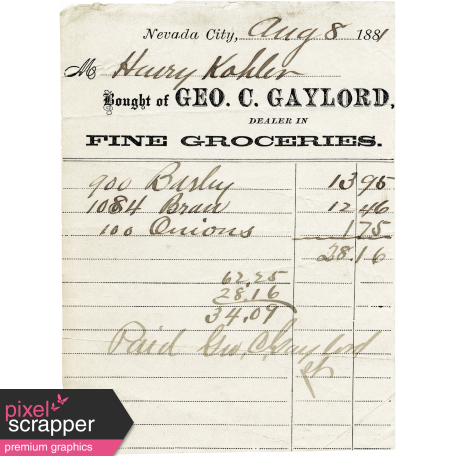 Nevada City, Aug 8 1881
Mr Henry Kohler
Bought of GEO. C. GAYLORD,
DEALER IN
FINE GROCERIES.
900 Barley 13 95
1084 Bran 12 46
100 Onions 1 75
28.16
62.25
28.16
34.09
Paid Geo. C. Gaylord
pixel
scrapper
premium graphics